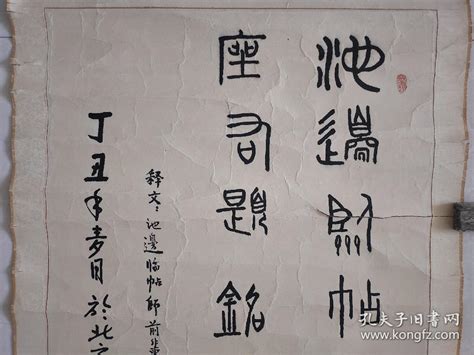 池邊臨帖
座右題銘
释文：池邊临帖師前辈
丁丑年麦月於北
孔夫子旧书网
www.kongfz.com